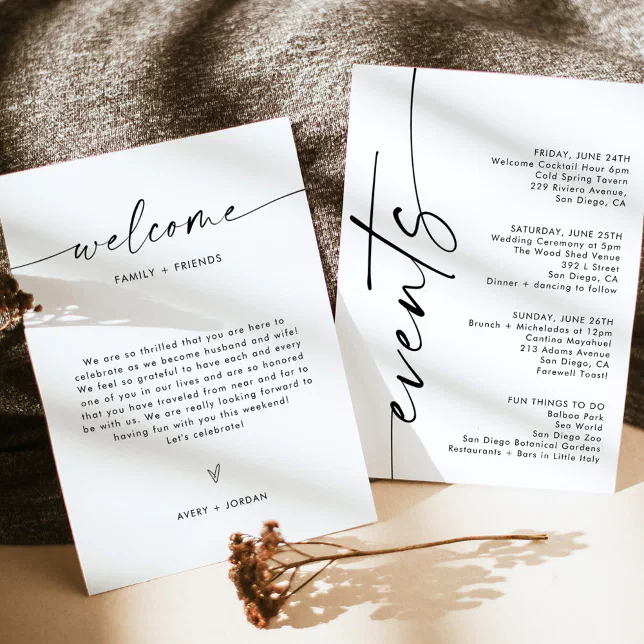 welcome
FAMILY + FRIENDS
We are so thrilled that you are here to
celebrate as we become husband and wife!
We feel so grateful to have each and every
one of you in our lives and are so honored
that you have traveled from near and far to
be with us. We are really looking forward to
having fun with you this weekend!
Let's celebrate!
AVERY + JORDAN
events
FRIDAY, JUNE 24TH
Welcome Cocktail Hour 6pm
Cold Spring Tavern
229 Riviera Avenue,
San Diego, CA
SATURDAY, JUNE 25TH
Wedding Ceremony at 5pm
The Wood Shed Venue
392 L Street
San Diego, CA
Dinner + dancing to follow
SUNDAY, JUNE 26TH
Brunch + Micheladas at 12pm
Cantina Mayahuel
213 Adams Avenue
San Diego, CA
Farewell Toast!
FUN THINGS TO DO
Balboa Park
Sea World
San Diego Zoo
San Diego Botanical Gardens
Restaurants + Bars in Little Italy